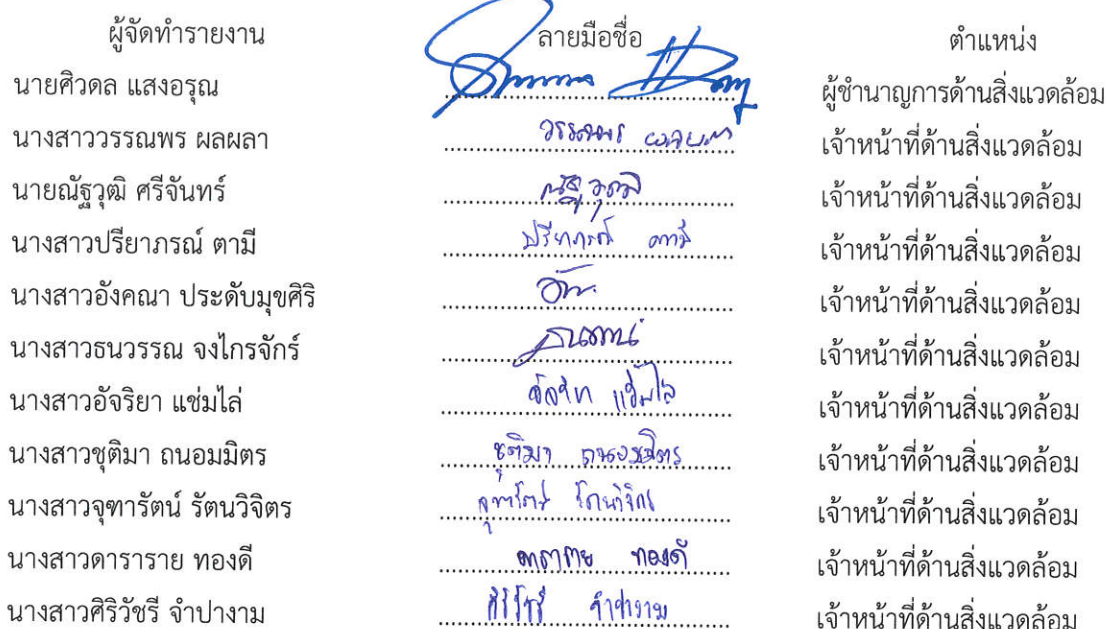 ผู้จัดทำรายงาน ลายมือชื่อ ตำแหน่ง
นายศิวดล แสงอรุณ ผู้ชำนาญการด้านสิ่งแวดล้อม
นางสาววรรณพร ผลผลา วรรณพร ผลผลา เจ้าหน้าที่ด้านสิ่งแวดล้อม
นายณัฐวุฒิ ศรีจันทร์ ณัฐวุฒิ เจ้าหน้าที่ด้านสิ่งแวดล้อม
นางสาวปรียาภรณ์ ตามี ปรียาภรณ์ ตามี เจ้าหน้าที่ด้านสิ่งแวดล้อม
นางสาวอังคณา ประดับมุขศิริ เจ้าหน้าที่ด้านสิ่งแวดล้อม
นางสาวธนวรรณ จงไกรจักร์ เจ้าหน้าที่ด้านสิ่งแวดล้อม
นางสาวอัจริยา แช่มไล่ อัจริยา แช่มไล่ เจ้าหน้าที่ด้านสิ่งแวดล้อม
นางสาวชุติมา ถนอมมิตร ชุติมา ถนอมมิตร เจ้าหน้าที่ด้านสิ่งแวดล้อม
นางสาวจุฑารัตน์ รัตนวิจิตร จุฑารัตน์ รัตนวิจิตร เจ้าหน้าที่ด้านสิ่งแวดล้อม
นางสาวดาราราย ทองดี ดาราราย ทองดี เจ้าหน้าที่ด้านสิ่งแวดล้อม
นางสาวศิริวัชรี จำปางาม ศิริวัชรี จำปางาม เจ้าหน้าที่ด้านสิ่งแวดล้อม